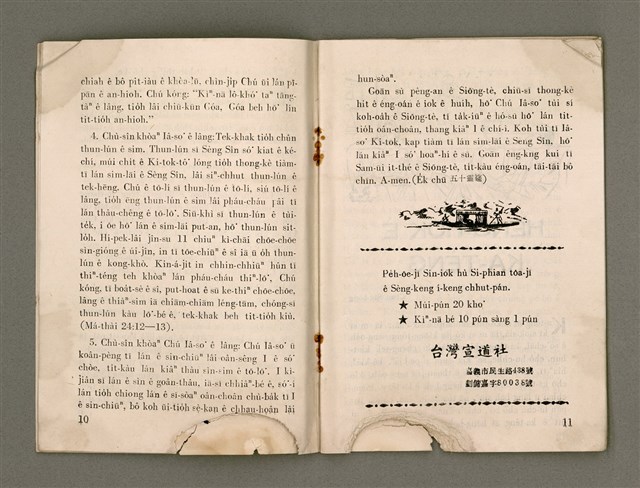 chiah ê bô pit-iàu ê khòa-lū, chìn-ji̍p Chú ūi lán pī-
pān ê an-hioh. Chú kóng: "Kìⁿ-nā lô-khó͘ taⁿ tāng-
tàⁿ ê lâng, tio̍h lâi chiū-kūn Góa, Góa beh hō͘ lín
tit-tio̍h an-hioh."
4. Chù-sîn khòaⁿ Iâ-so͘ ê lâng: Tek-khak tio̍h chūn
thun-lún ê sim. Thun-lún sī Sèng Sîn só͘ kiat ê ké-
chí, múi chi̍t ê Ki-tok-tô͘ lóng tio̍h thong-kè tiàm-
tī lán sim-lāi ê Sèng Sîn, lâi siⁿ-chhut thun-lún ê
tek-hēng. Chú ê tō-lí sī thun-lún ê tō-lí, siú tō-lí ê
lâng, tio̍h ēng thun-lún ê sim lâi pháu-cháu pâi tī
lán thâu-chêng ê tō-lō͘. Siū-khì sī thun-lún ê tùi-
te̍k, i óe hō͘ lán ê sim-lāi put-an, hō͘ thun-lún sit-
lo̍h. Hi-pek-lâi jîn-su 11 chiuⁿ ki-chāi chōe-chōe
sìn-gióng ê úi-jîn, in tī tōe-chiūⁿ ê sî iā ū o̍h thun-
lún ê kong-khò. Kin-á-ji̍t in chhin-chhiūⁿ hûn tī
thiⁿ-téng teh khòaⁿ lán pháu-cháu thiⁿ-lō͘. Chú
kóng, tī boa̍t-sè ê sî, put-hoat ê sū ke-thiⁿ chōe-chōe,
lâng ê thiàⁿ-sim iā chiām-chiām léng-tām, chóng-sī
thun-lún kàu lō͘-bé ê, tek-khak beh tit-tio̍h kiù.
(Má-thài 24:12—13).
5. Chù-sîn khòaⁿ Iâ-so͘ ê lâng: Chú Iâ-so͘ ūi
koân-pèng tī lán ê sin-chiuⁿ lâi oân-sêng I ê só͘
chòe, tit-kàu lán kiâⁿ thàu sin-sim ê tō-lō͘. I ki-
10
hun-sòaⁿ.
Goān sù pêng-an ê Siōng-tè, chiū-sī thong-kè
hit ê éng-oán ê iok ê huih, hō͘ Chú Iâ-so͘ tùi sí
koh-oa̍h ê Siōng-tè, tī ta̍k-iūⁿ ê hó-sū hō͘ lán tit-
tio̍h oân-choân, thang kiâⁿ I ê chí-ì. Koh tùi tī Iâ-
so͘ Ki-tok, kap tiàm tī lán sim-lāi ê Seng Sîn, hō͘
lán kiâⁿ I só͘ hoaⁿ-hí ê sū. Goān êng-kng kui tī
Sam-ūi it-thé ê Siōng-tè, tit-kàu éng-oán, tāi-tāi bô
chīn. A-men. (E̍k chū 五十靈糧)
Pe̍h-ōe-jī Sin-iok hù Si-phian tōa-jī
ê Sèng-keng í-keng chhut-pán.
★ Múi-pún 20 kho͘
★ Kìⁿ-nā bé 10 pún sàng 1 pún
台灣宣道社
嘉義市民生路438號
劃儲嘉字80038號
11